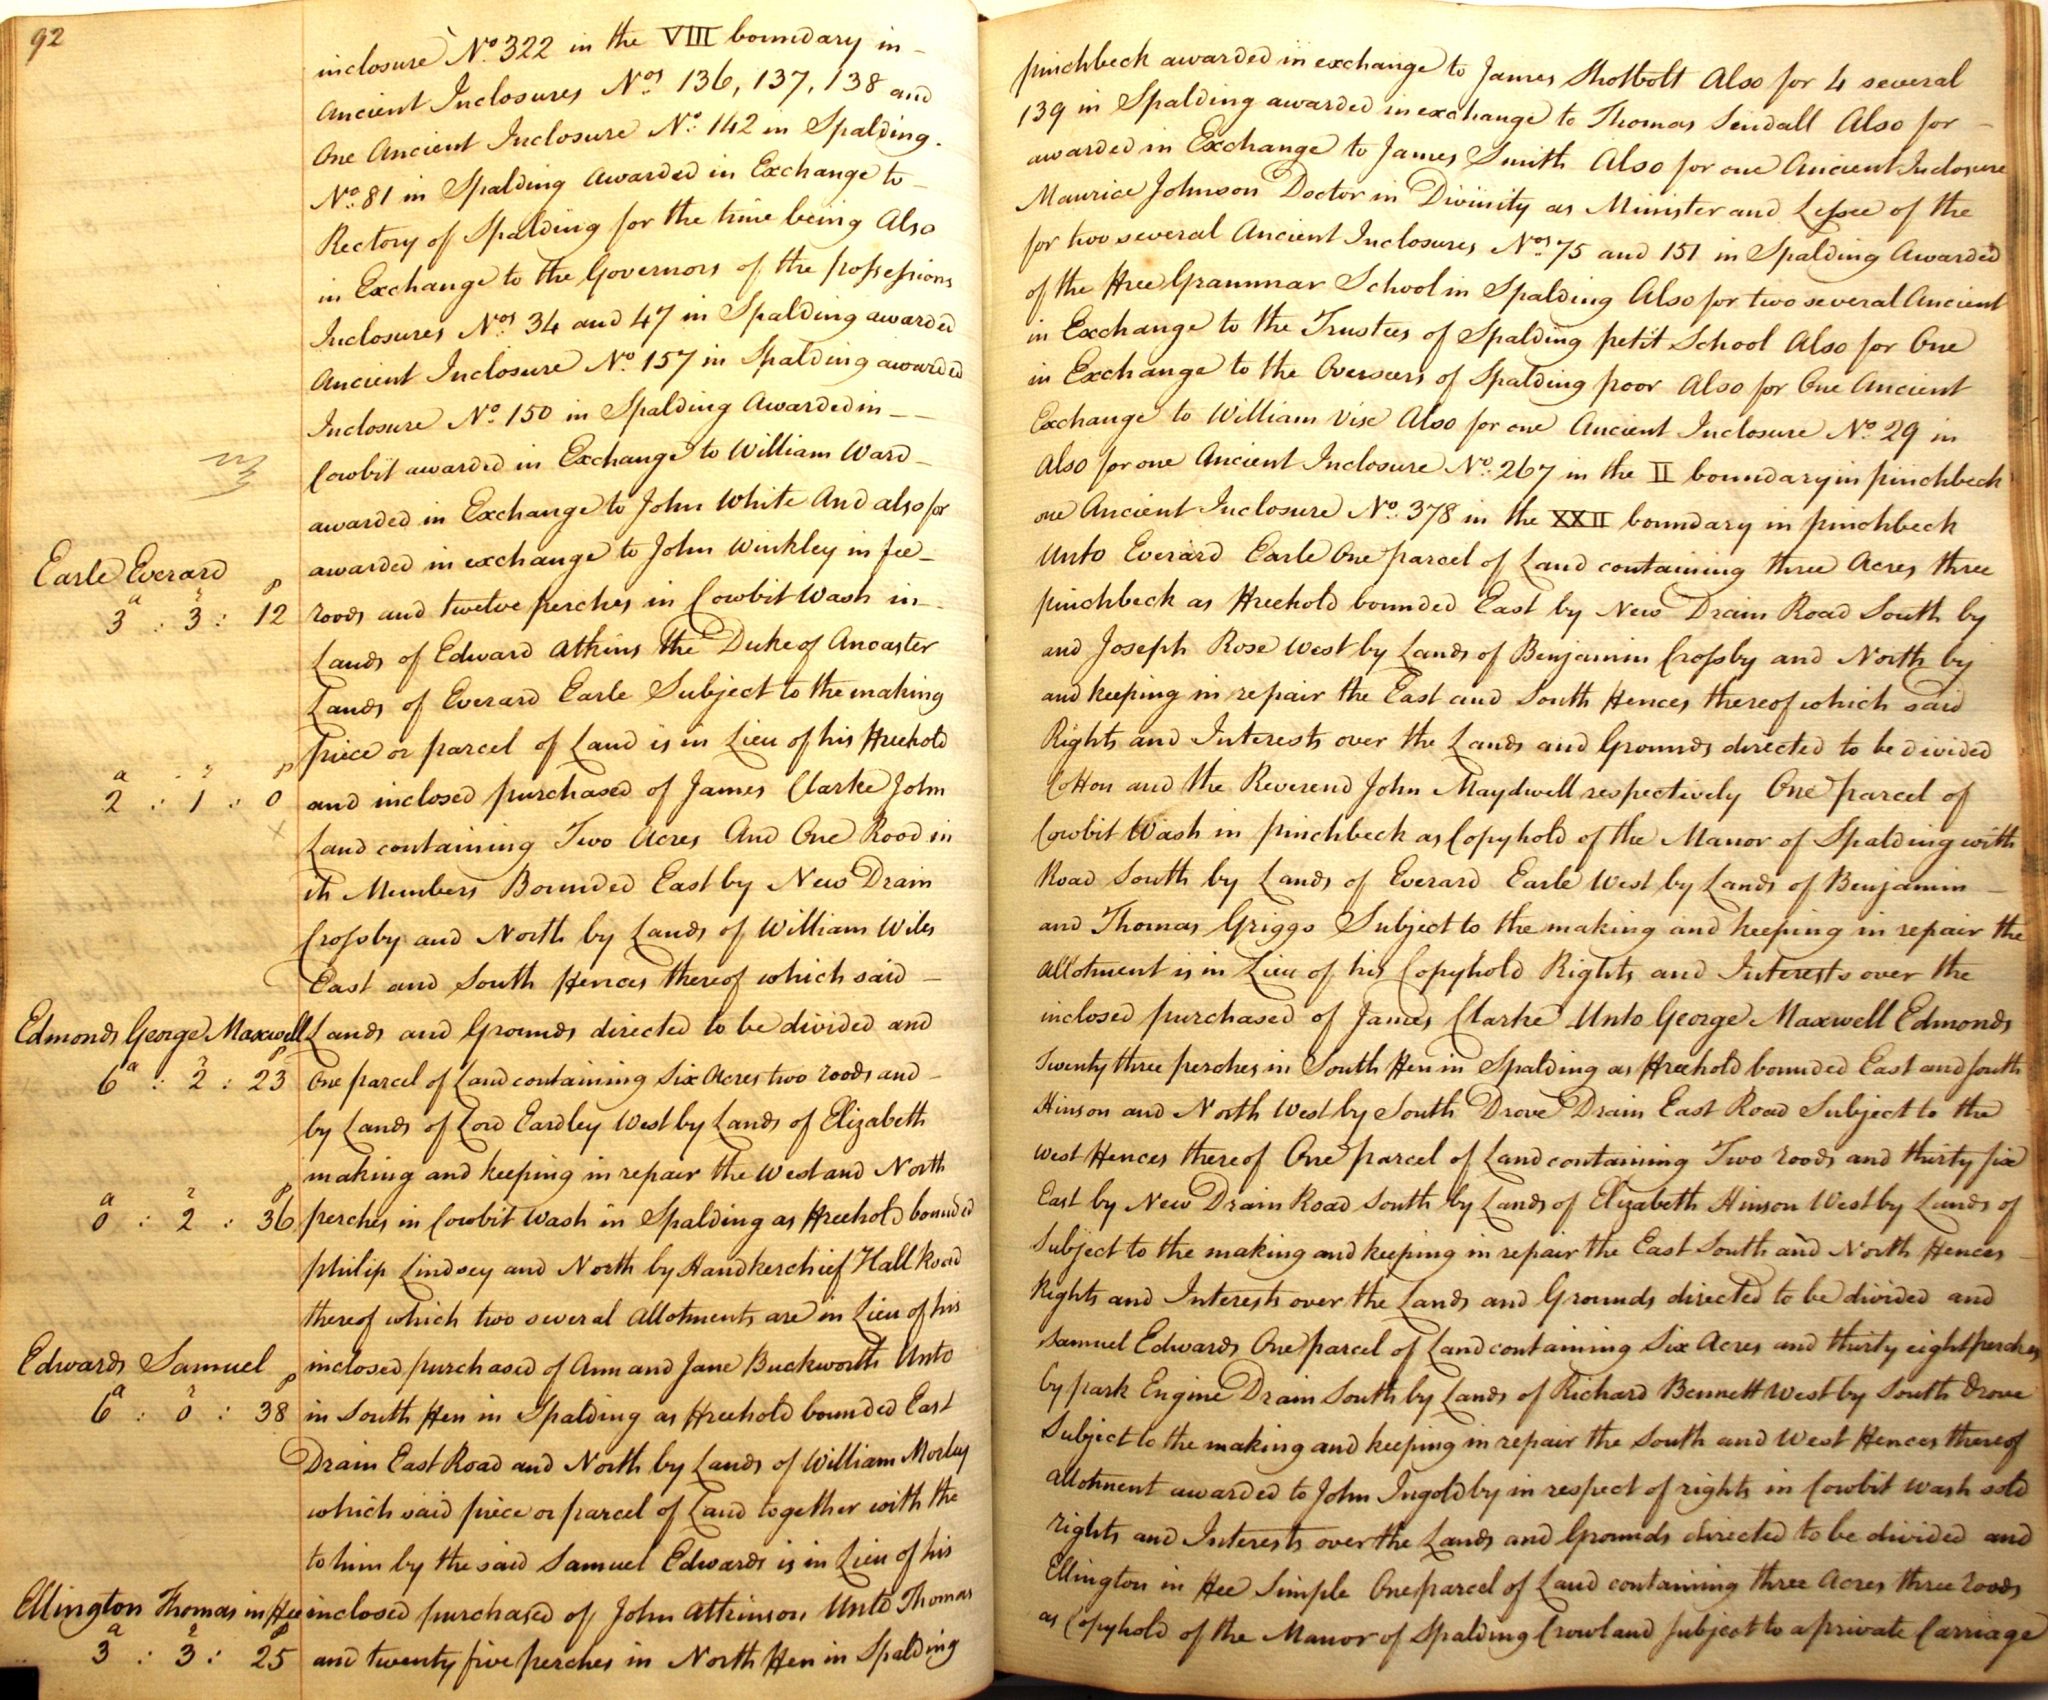 92
inclosure No. 322 in the VIII boundary in – pinchbeck awarded in exchange to James Shotbolt Also for 4 several
Ancient Inclosures Nos. 136, 137, 138 and 139 in Spalding awarded in exchange to Thomas Sindall Also for –
One Ancient Inclosure No. 142 in Spalding. awarded in Exchange to James Smith Also for one Ancient Inclosure
No. 81 in Spalding Awarded in Exchange to – Maurice Johnson Doctor in Divinity as Minister and Lessee of the
Rectory of Spalding for the time being Also for two several Ancient Inclosures Nos. 75 and 151 in Spalding Awarded
in Exchange to the Governors of the possessions of the Free Grammar School in Spalding Also for two several Ancient
Inclosures Nos. 34 and 47 in Spalding awarded in Exchange to the Trustees of Spalding petit School Also for One
Ancient Inclosure No. 157 in Spalding awarded in Exchange to the Overseers of Spalding poor Also for One Ancient
Inclosure No. 150 in Spalding Awarded in – – Exchange to William Vise Also for one Ancient Inclosure No. 29 in
Cowbit awarded in Exchange to William Ward – Also for one Ancient Inclosure No. 267 in the II boundary in pinchbeck
awarded in Exchange to John White And also for one Ancient Inclosure No. 378 in the XXII boundary in pinchbeck
Earle Everard
awarded in exchange to John Winkley in fee – Unto Everard Earle One parcel of Land containing three Acres three
3a : 3r : 12p
roods and twelve perches in Cowbit Wash in – pinchbeck as Freehold bounded East by New Drain Road South by
Lands of Edward Atkins the Duke of Ancaster and Joseph Rose West by Lands of Benjamin Crossby and North by
Lands of Everard Earle Subject to the making and keeping in repair the East and South Fences thereof which said
piece or parcel of Land is in Lieu of his Freehold Rights and Interests over the Lands and Grounds directed to be divided
2a : 1r : 0p
and inclosed purchased of James Clarke John Cotton and the Reverend John Maydwell respectively One parcel of
Land containing Two Acres And One Rood in Cowbit Wash in pinchbeck as Copyhold of the Manor of Spalding with
its Members Bounded East by New Drain Road South by Lands of Everard Earle West by Lands of Benjamin –
Crossby and North by Lands of William Wiles and Thomas Griggs Subject to the making and keeping in repair the
East and South Fences thereof which said – Allotment is in Lieu of his Copyhold Rights and Interests over the
Edmonds George Maxwell
Lands and Grounds directed to be divided and inclosed purchased of James Clarke Unto George Maxwell Edmonds
6a : 2r : 23p
One parcel of Land containing Six Acres two roods and – Twenty three perches in South Fen in Spalding as Freehold bounded East and South
by Lands of Lord Eardley West by Lands of Elizabeth Hinson and North West by South Drove Drain East Road Subject to the
making and keeping in repair the West and North West Fences thereof One parcel of Land containing Two roods and thirty six
0a : 2r : 36p
perches in Cowbit Wash in Spalding as Freehold bounded East by New Drain Road South by Lands of Elizabeth Hinson West by Lands of
philip Lindsey and North by Handkerchief Hall Road Subject to the making and keeping in repair the East South and North Fences
thereof which two several Allotments are in Lieu of his Rights and Interests over the Lands and Grounds directed to be divided and
Edwards Samuel
inclosed purchased of Ann and Jane Buckworth Unto Samuel Edwards One parcel of Land containing Six Acres and thirty eight perches
6a : 0r : 38p
in South Fen in Spalding as Freehold bounded East by park Engine Drain South by Lands of Richard Bennett West by South Drove
Drain East Road and North by Lands of William Morley Subject to the making and keeping in repair the South and West Fences thereof
which said piece or parcel of Land together with the allotment awarded to John Ingoldby in respect of rights in Cowbit Wash sold
to him by the said Samuel Edwards is in Lieu of his rights and Interests over the Lands and Grounds directed to be divided and
Ellington Thomas in Fee
inclosed purchased of John Atkinson Unto Thomas Ellington in Fee Simple One parcel of Land containing three Acres three roods
3a : 3r : 25p
and twenty five perches in North Fen in Spalding as Copyhold of the Manor of Spalding Crowland subject to a private Carriage